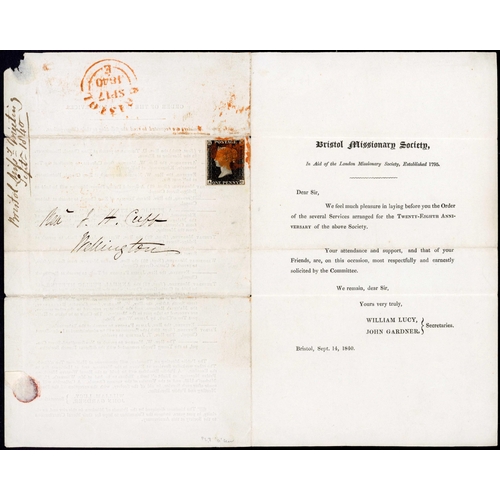 BRISTOL
SP17
1840
E
Bristol
Sept 1840
POSTAGE
ONE PENNY
J. H. Cuff
Wellington
Bristol Missionary Society,
In Aid of the London Missionary Society, Established 1795.
Dear Sir,
We feel much pleasure in laying before you the Order
of the several Services arranged for the TWENTY-EIGHTH ANNI-
VERSARY of the above Society.
Your attendance and support, and that of your
Friends, are, on this occasion, most respectfully and earnestly
solicited by the Committee.
We remain, dear Sir,
Yours very truly,
WILLIAM LUCY,
JOHN GARDNER,
Secretaries.
Bristol, Sept. 14, 1840.